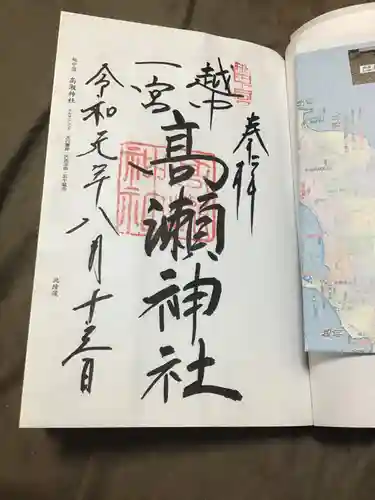 奉拝
越中
一宮
高瀬神社
令和元年八月十三日
越中国 高瀬神社
北陸道